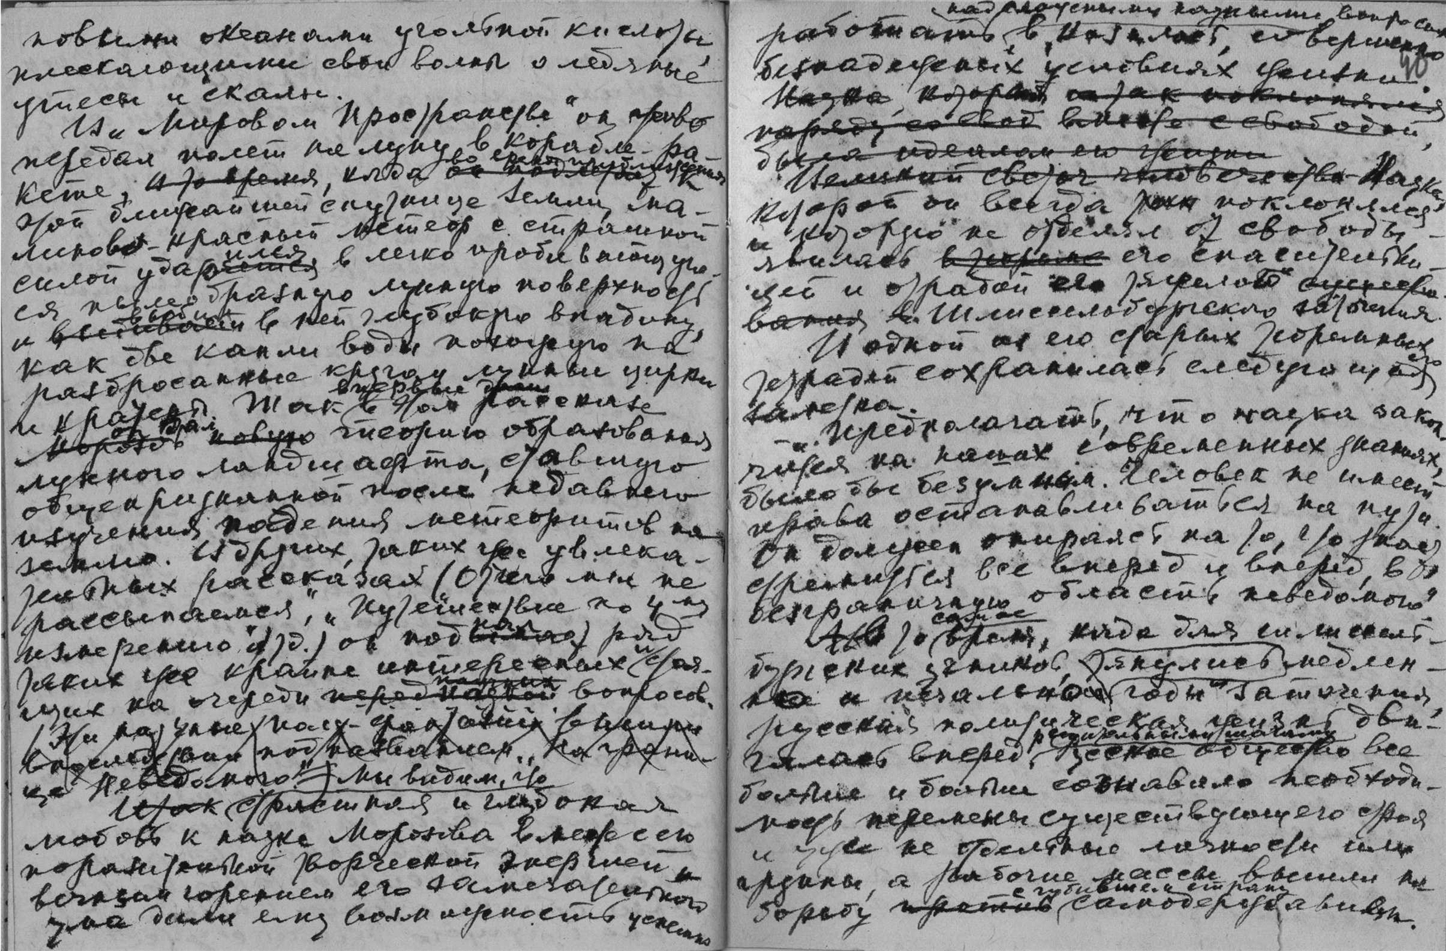 новыми океанами угольной кислоты,
плескающими свои волны о ледяные
утесы и скалы.
И в "Мировом Пространстве" он
передал полет на луну в корабле-ра-
кете, в то время, когда во время приближения к
этой ближайшей спутнице Земли, ма-
линово-красный метеор с страшной
силой ударился в легко пробивающую-
ся пылеобразную лунную поверхность
и в ней глубокую впадину,
как две капли воды похожую на
разбросанные кругом лунные цирки
и кратеры. Так впервые в этом рассказе
Морозов он дал новую теорию образования
лунного ландшафта, ставшую
общепризнанной после недавнего
изучения падения метеоритов на
землю. И в других, таких же увлека-
тельных рассказах (Отчего мы не
рассыпаемся, "Путешествие по 4му
измерению" и т.д.) он поднимал ряд
таких же крайне интересных и стоя-
щих на очереди перед наукой научных вопросов.
Эти научные полу-фантазии вышли
впоследствии под названием "На грани-
це Неведомого") Мы видим, что
Итак страстная и глубокая
любовь к науке Морозова вместе с его
поразительной творческой энергией и
вечным горением его замечательного
ума дали ему возможность успешно
над сложными научными вопросами
работать в совершенно
безнадежных условиях жизни.
40
Наука, которой он так поклонялся
наряду со свободой,
была идеалом его жизни
Великий светоч человечества Наука,
которой он всегда поклонялся
и которую не отделял от свободы, -
явилась его спаситель-
цей и отрадой его тяжелого существо-
вания в Шлиссельбургском заточении.
И в одной из его старых тюремных
тетрадей сохранилась следующая его
заметка.
"Предполагать, что наука закон-
чится на наших современных знаниях,
было бы безумным. Человек не имеет
права останавливаться на пути.
Он должен опираясь на то, что знает
стремиться все вперед и вперед, в
безграничную область неведомого"
В то самое время, когда для шлиссель-
бургских узников, тянулись медлен-
но и печально годы заточения,
русская политическая жизнь дви-
галась вперед решительными шагами Русское общество все
больше и больше сознавало необходи-
мость перемены существующего строя
и уже не отдельные личности или
группы, а рабочие массы вышли на
борьбу против с губившим страну самодержавием.